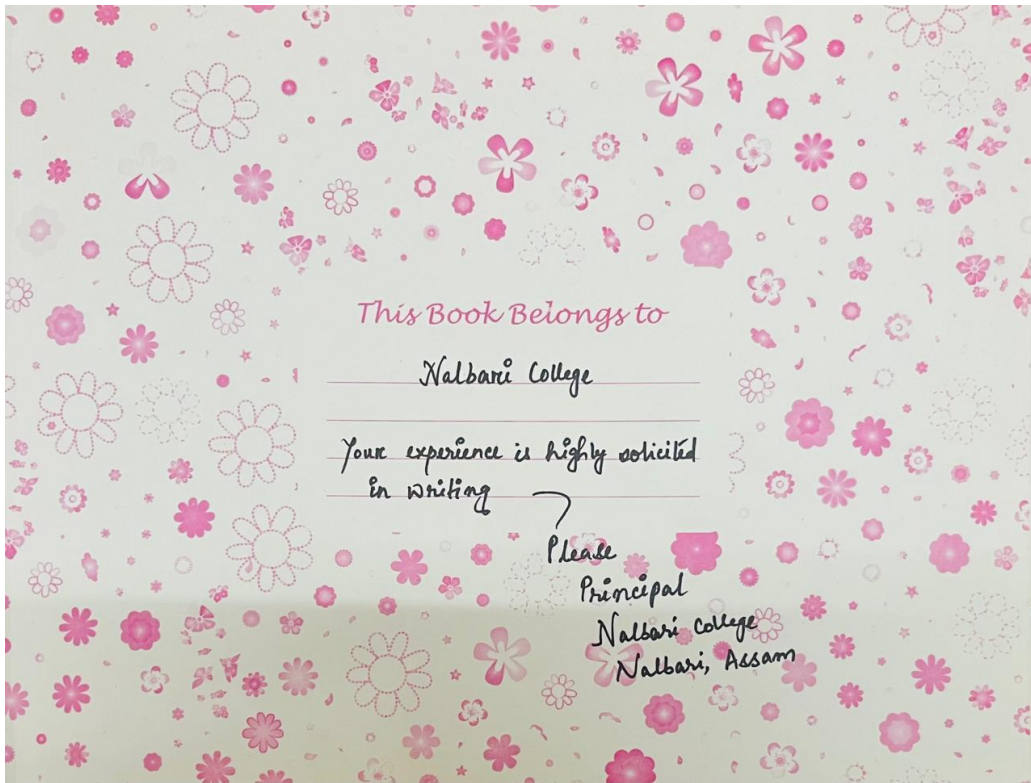 This Book Belongs to
Nalbari College
Your experience is highly solicited
in writing
Please
Principal
Nalbari College
Nalbari, Assam